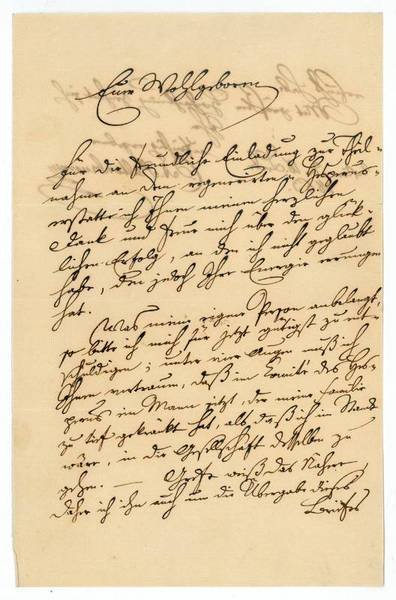 Euer Wohlgeboren
Für die freundliche Einladung zur Theil-
nahme an dem regenerirten Hesperus
erstatte ich Ihnen meinen herzlichen
Dank und freue mich über den glück-
lichen Erfolg, an den ich nicht geglaubt
habe, den jedoch Ihre Energie errungen
hat.
Was meine eigene Person anbelangt,
so bitte ich mich für jetzt gütigst zu ent-
schuldigen; unter vier Augen muß ich
Ihnen vertrauen, daß im Comité des Hes-
perus ein Mann sitzt, der meine Familie
zu tief gekränkt hat, als daß ich im Stande
wäre, in die Gesellschaft desselben zu
gehen. — weiß das Nähere,
daher ich ihn auch um die Übergabe dieses
Briefes